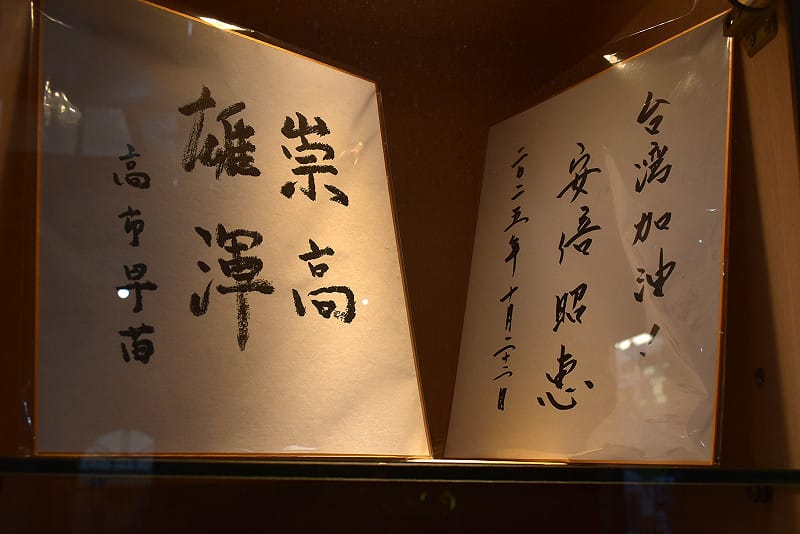 崇高
雄渾
高市早苗
台湾加油！
安倍昭恵
二〇二五年十月二十二日